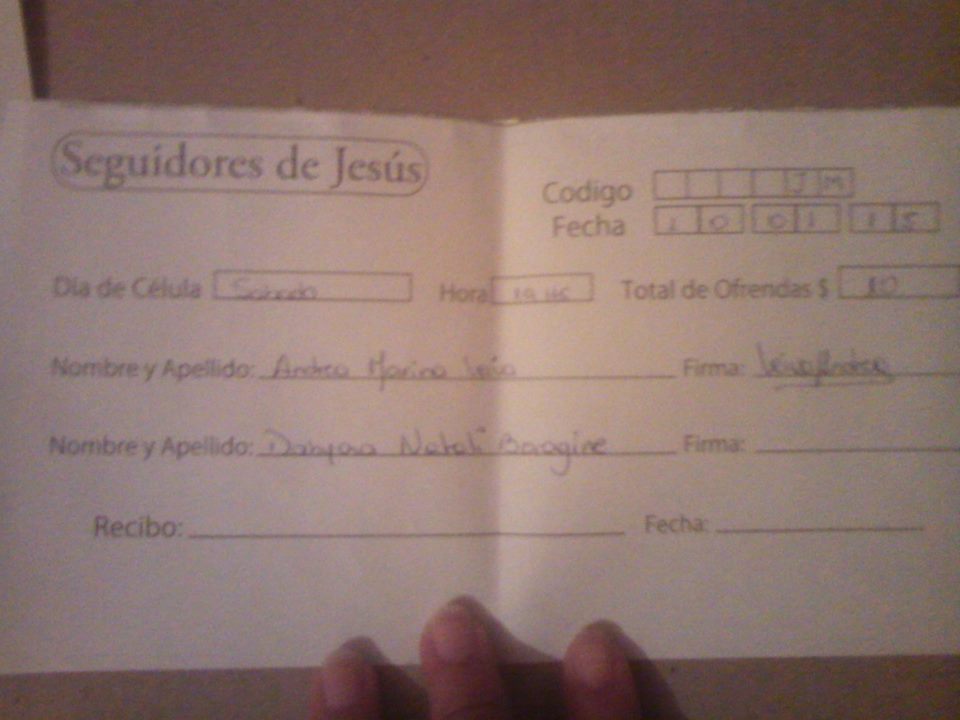 Seguidores de Jesús
Codigo J M
Fecha 10 01 15
Día de Célula Sabado Hora 19 Hs Total de Ofrendas $ 10
Nombre y Apellido: Andrea Marina Firma:
Nombre y Apellido: Natali Firma:
Recibo: Fecha: